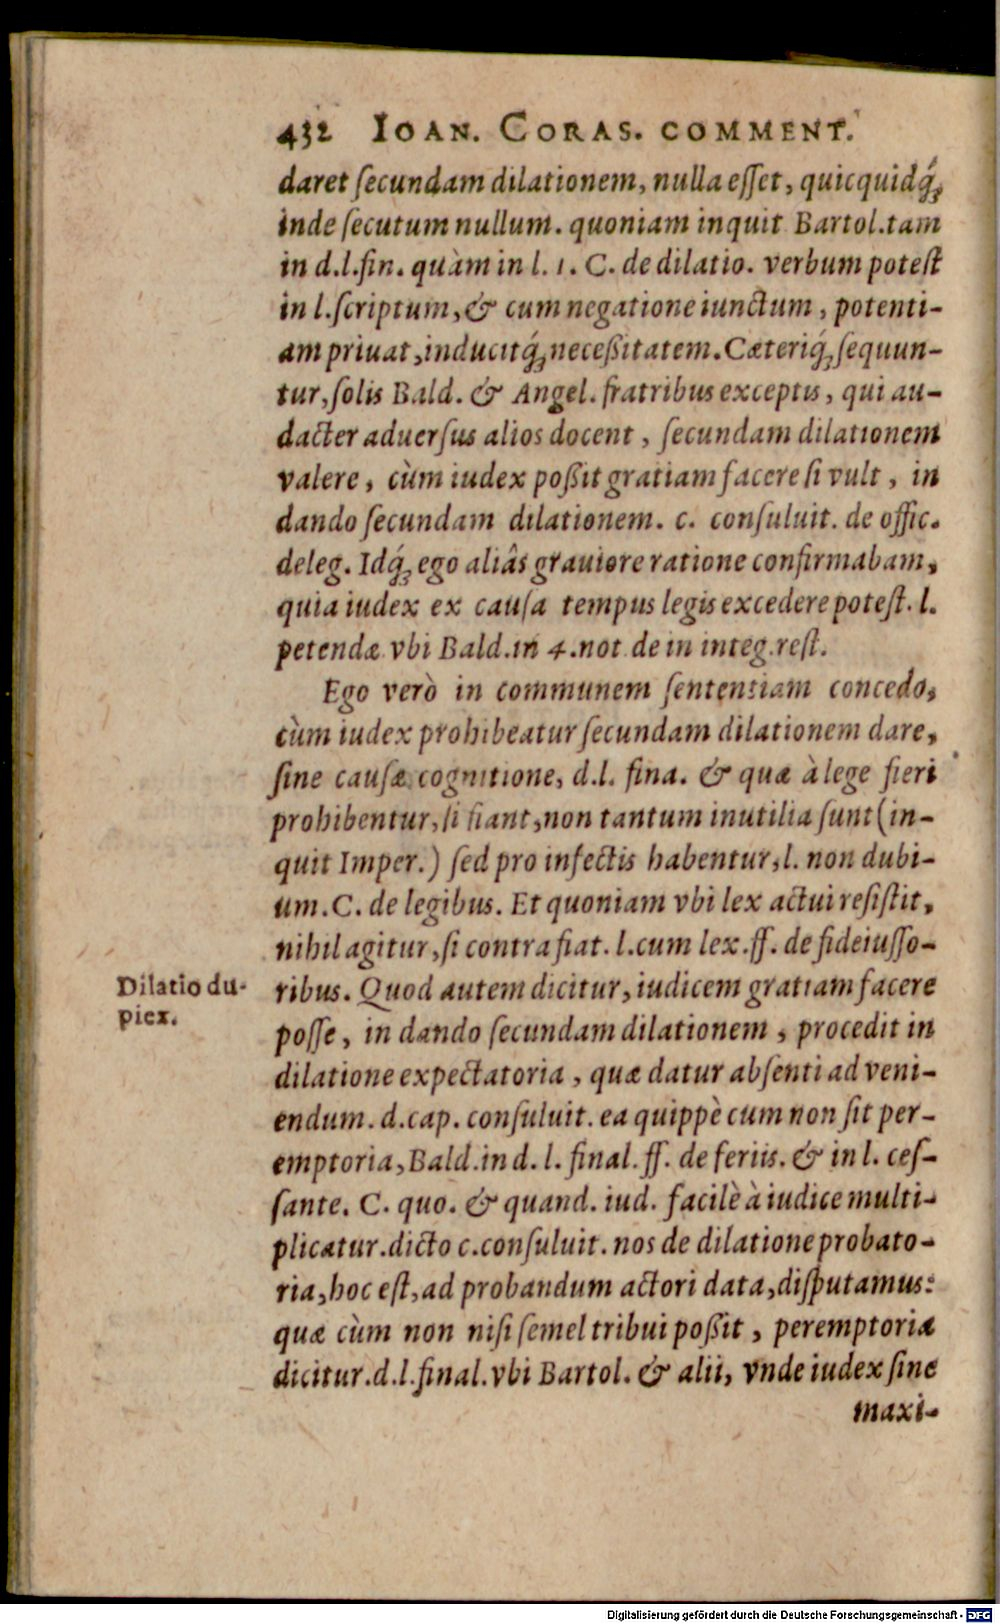 432 IOAN. CORAS. COMMENT.
daret ſecundam dilationem, nulla eſſet, quicquidq́;
inde ſecutum nullum. quoniam inquit Bartol. tam
in d.l.fin. quàm in l. 1. C. de dilatio. verbum poteſt
in l.ſcriptum, & cum negatione iunctum, potenti-
am priuat, inducitq́; neceßitatem. Cæteriq́; ſequun-
tur, ſolis Bald. & Angel. fratribus exceptis, qui au-
dacter aduerſus alios docent, ſecundam dilationem
valere, cùm iudex poßit gratiam facere ſi vult, in
dando ſecundam dilationem. c. conſuluit. de offic.
deleg. Idq́; ego aliâs grauiore ratione confirmabam,
quia iudex ex cauſa tempus legis excedere poteſt. l.
petendæ vbi Bald. in 4. not. de in integ. reſt.
Ego verò in communem ſententiam concedo,
cùm iudex prohibeatur ſecundam dilationem dare,
ſine cauſæ cognitione, d.l. fina. & quæ à lege fieri
prohibentur, ſi fiant, non tantum inutilia ſunt (in-
quit Imper.) ſed pro infectis habentur, l. non dubi-
um. C. de legibus. Et quoniam vbi lex actui reſiſtit,
nihil agitur, ſi contra fiat. l.cum lex. ff. de fideiuſſo-
Dilatio du-
plex.
ribus. Quod autem dicitur, iudicem gratiam facere
poſſe, in dando ſecundam dilationem, procedit in
dilatione expectatoria, quæ datur abſenti ad veni-
endum. d. cap. conſuluit. ea quippè cum non ſit per-
emptoria, Bald. in d. l. final. ff. de feriis. & in l. ceſ-
ſante. C. quo. & quand. iud. facilè à iudice multi-
plicatur. dicto c. conſuluit. nos de dilatione probato-
ria, hoc eſt, ad probandum actori data, diſputamus:
quæ cùm non niſi ſemel tribui poßit, peremptoria
dicitur. d.l. final. vbi Bartol. & alii, vnde iudex ſine
maxi-
Digitalisierung gefördert durch die Deutsche Forschungsgemeinschaft - DFG